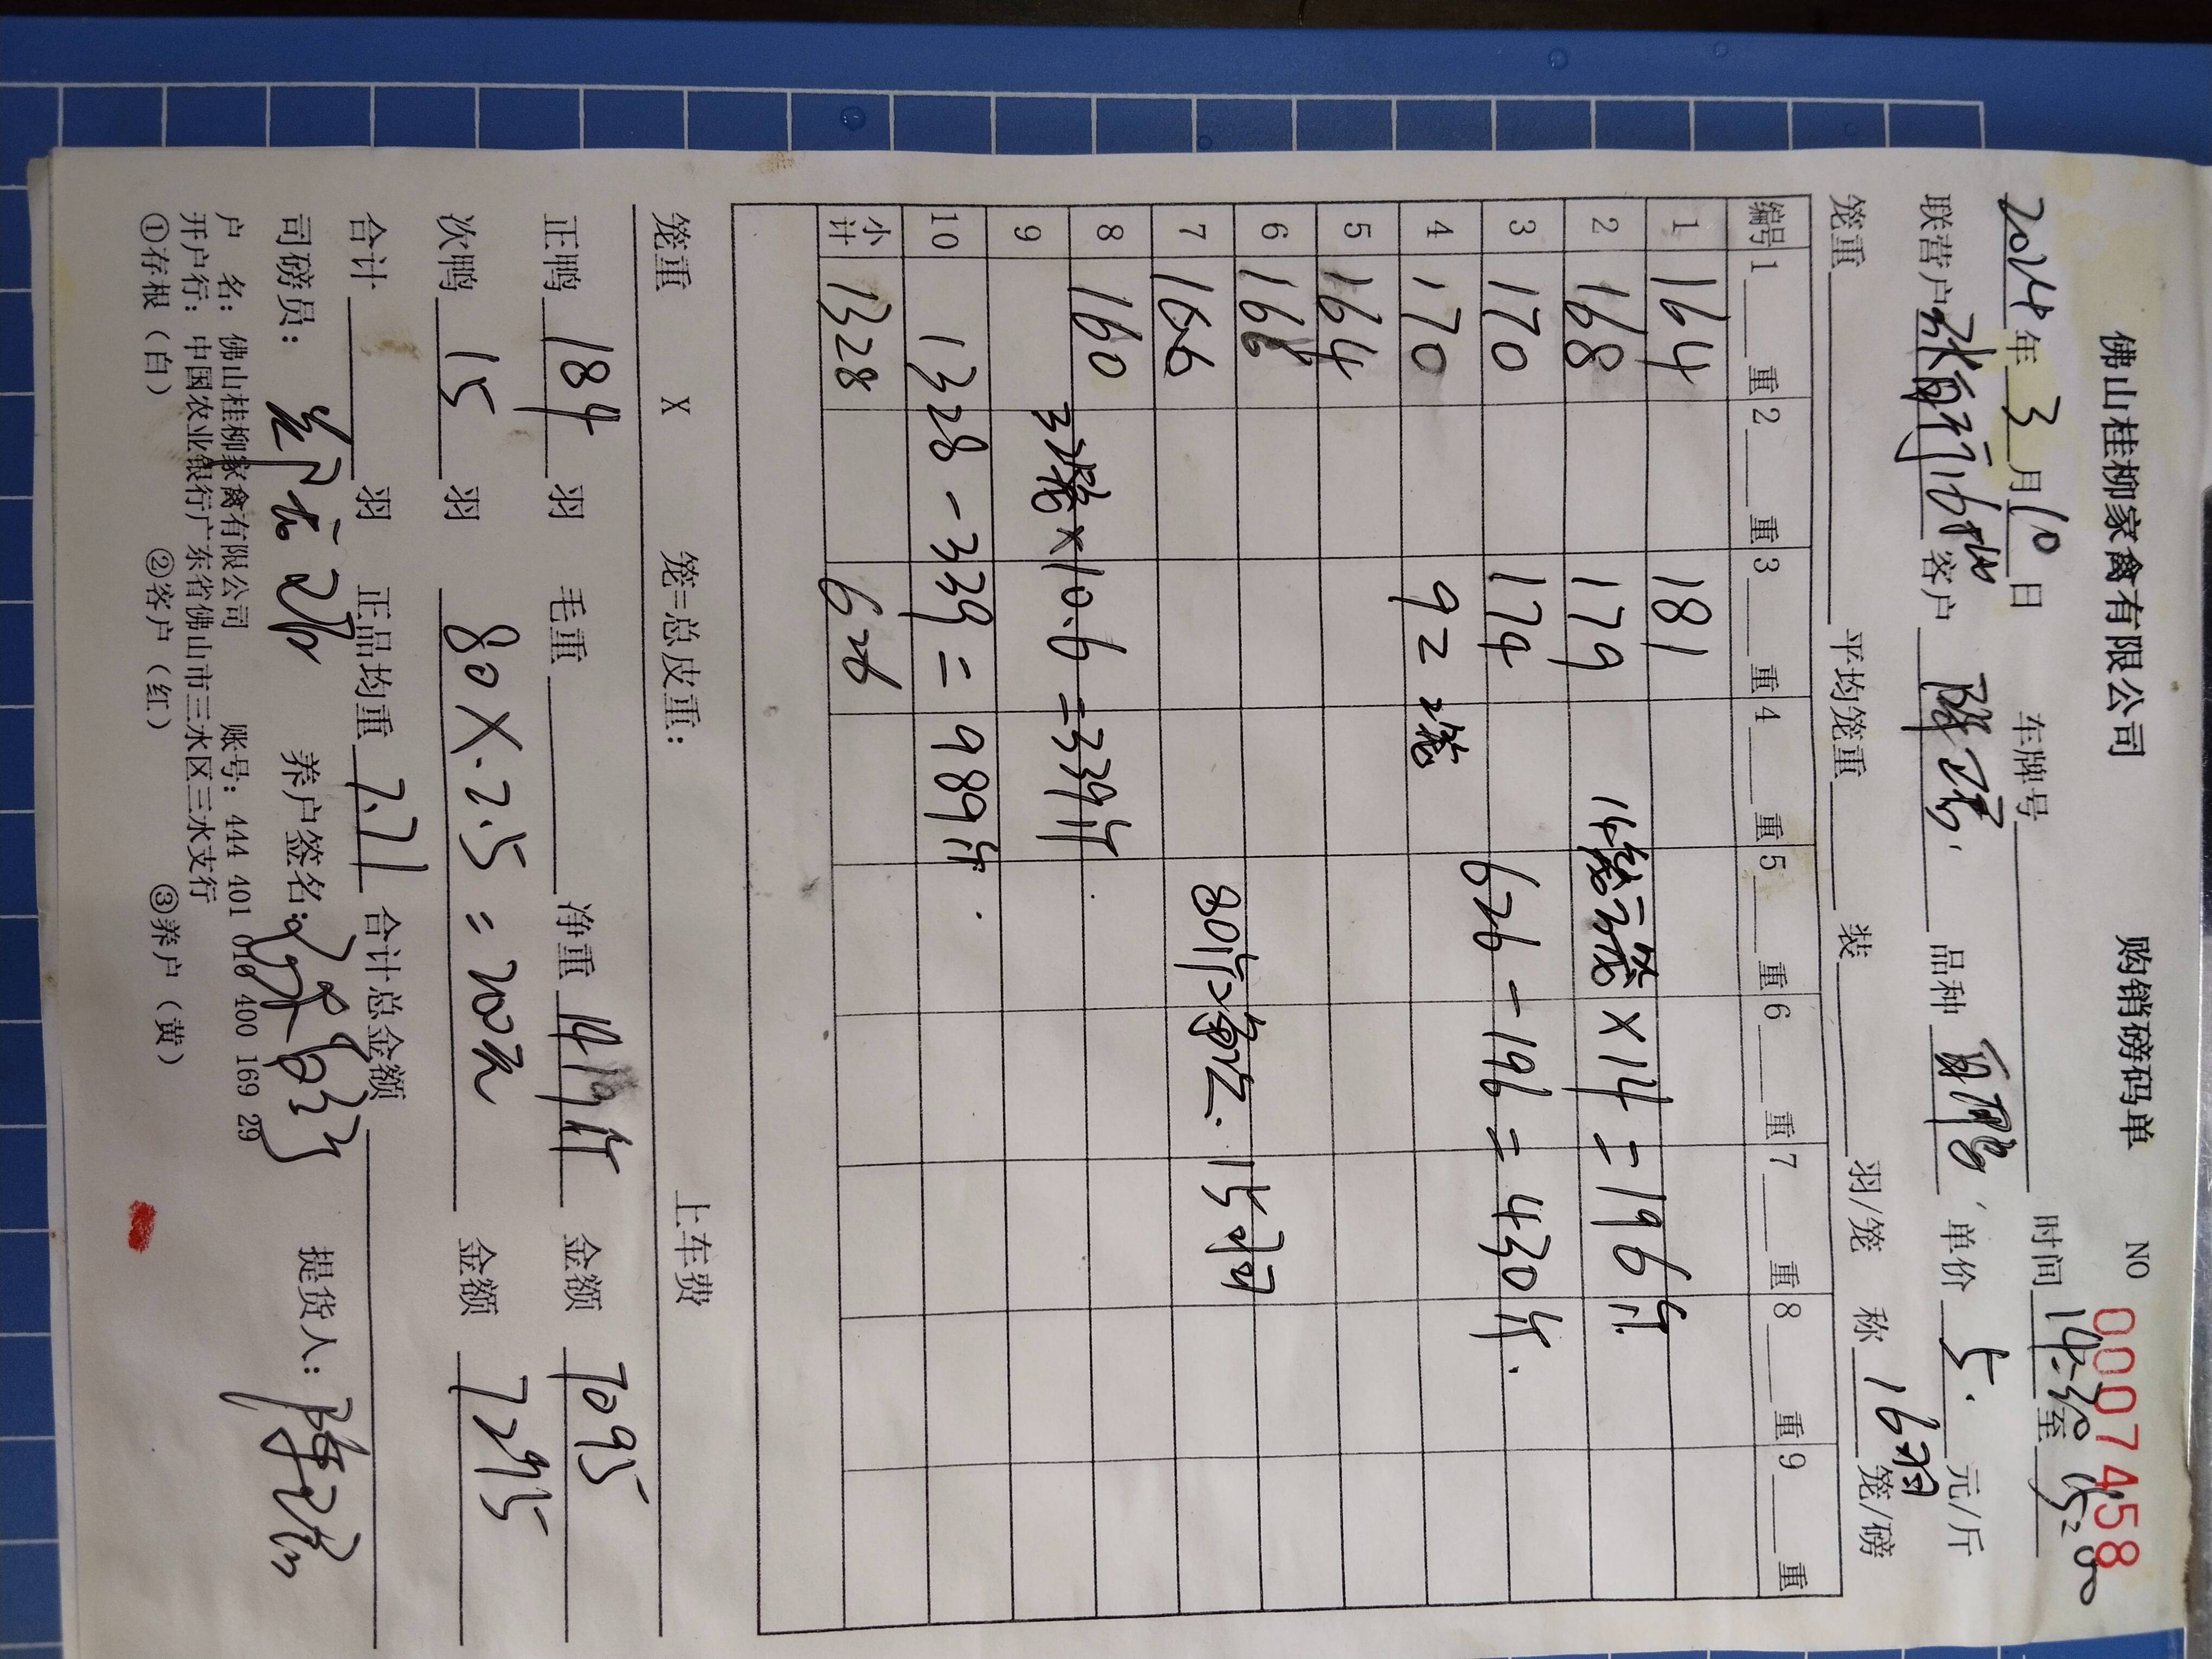 佛山桂柳家禽有限公司 购销磅码单 NO 0007458
2024年3月10日 车牌号 时间 14:30至15:00
联营户 客户 品种 单价 5. 元/斤
笼重 平均笼重 装 羽/笼 称 16羽 笼/磅
编号 1 重 2 重 3 重 4 重 5 重 6 重 7 重 8 重 9 重
1 164 181
2 168 179 14笼 ×14=196斤
3 170 174 626-196=430斤.
4 170 92 2笼
5 164
6 166
7 166 80斤 15羽
8 160
9 ×10.6=339斤
10 1328-339=989斤
小计 1328 626
笼重 X 笼=总皮重: 上车费
正鸭 184 羽 毛重 净重 1419斤 金额 7095
次鸭 15 羽 80×2.5=200元 金额 7295
合计 羽 正品均重 7.71 合计总金额
司磅员: 养户签名: 提货人:
户 名: 佛山桂柳家禽有限公司 账号: 444 401 010 400 169 29
开户行: 中国农业银行广东省佛山市三水区三水支行
①存根(白) ②客户(红) ③养户(黄)